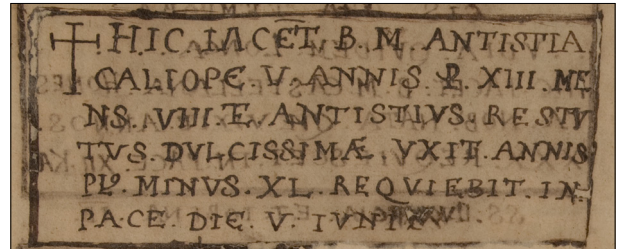 ✝ HIC. IACET B. M. ANTISTIA
CALIOPE V. ANNIS. P. XIII. ME
NS. VIII. E ANTISTIVS. RESTV
TVS. DVLCISSIMÆ VXIT. ANNIS
PLº. MINVS. XL. REQVIEBIT. IN.
PACE. DIE. V. IVNI